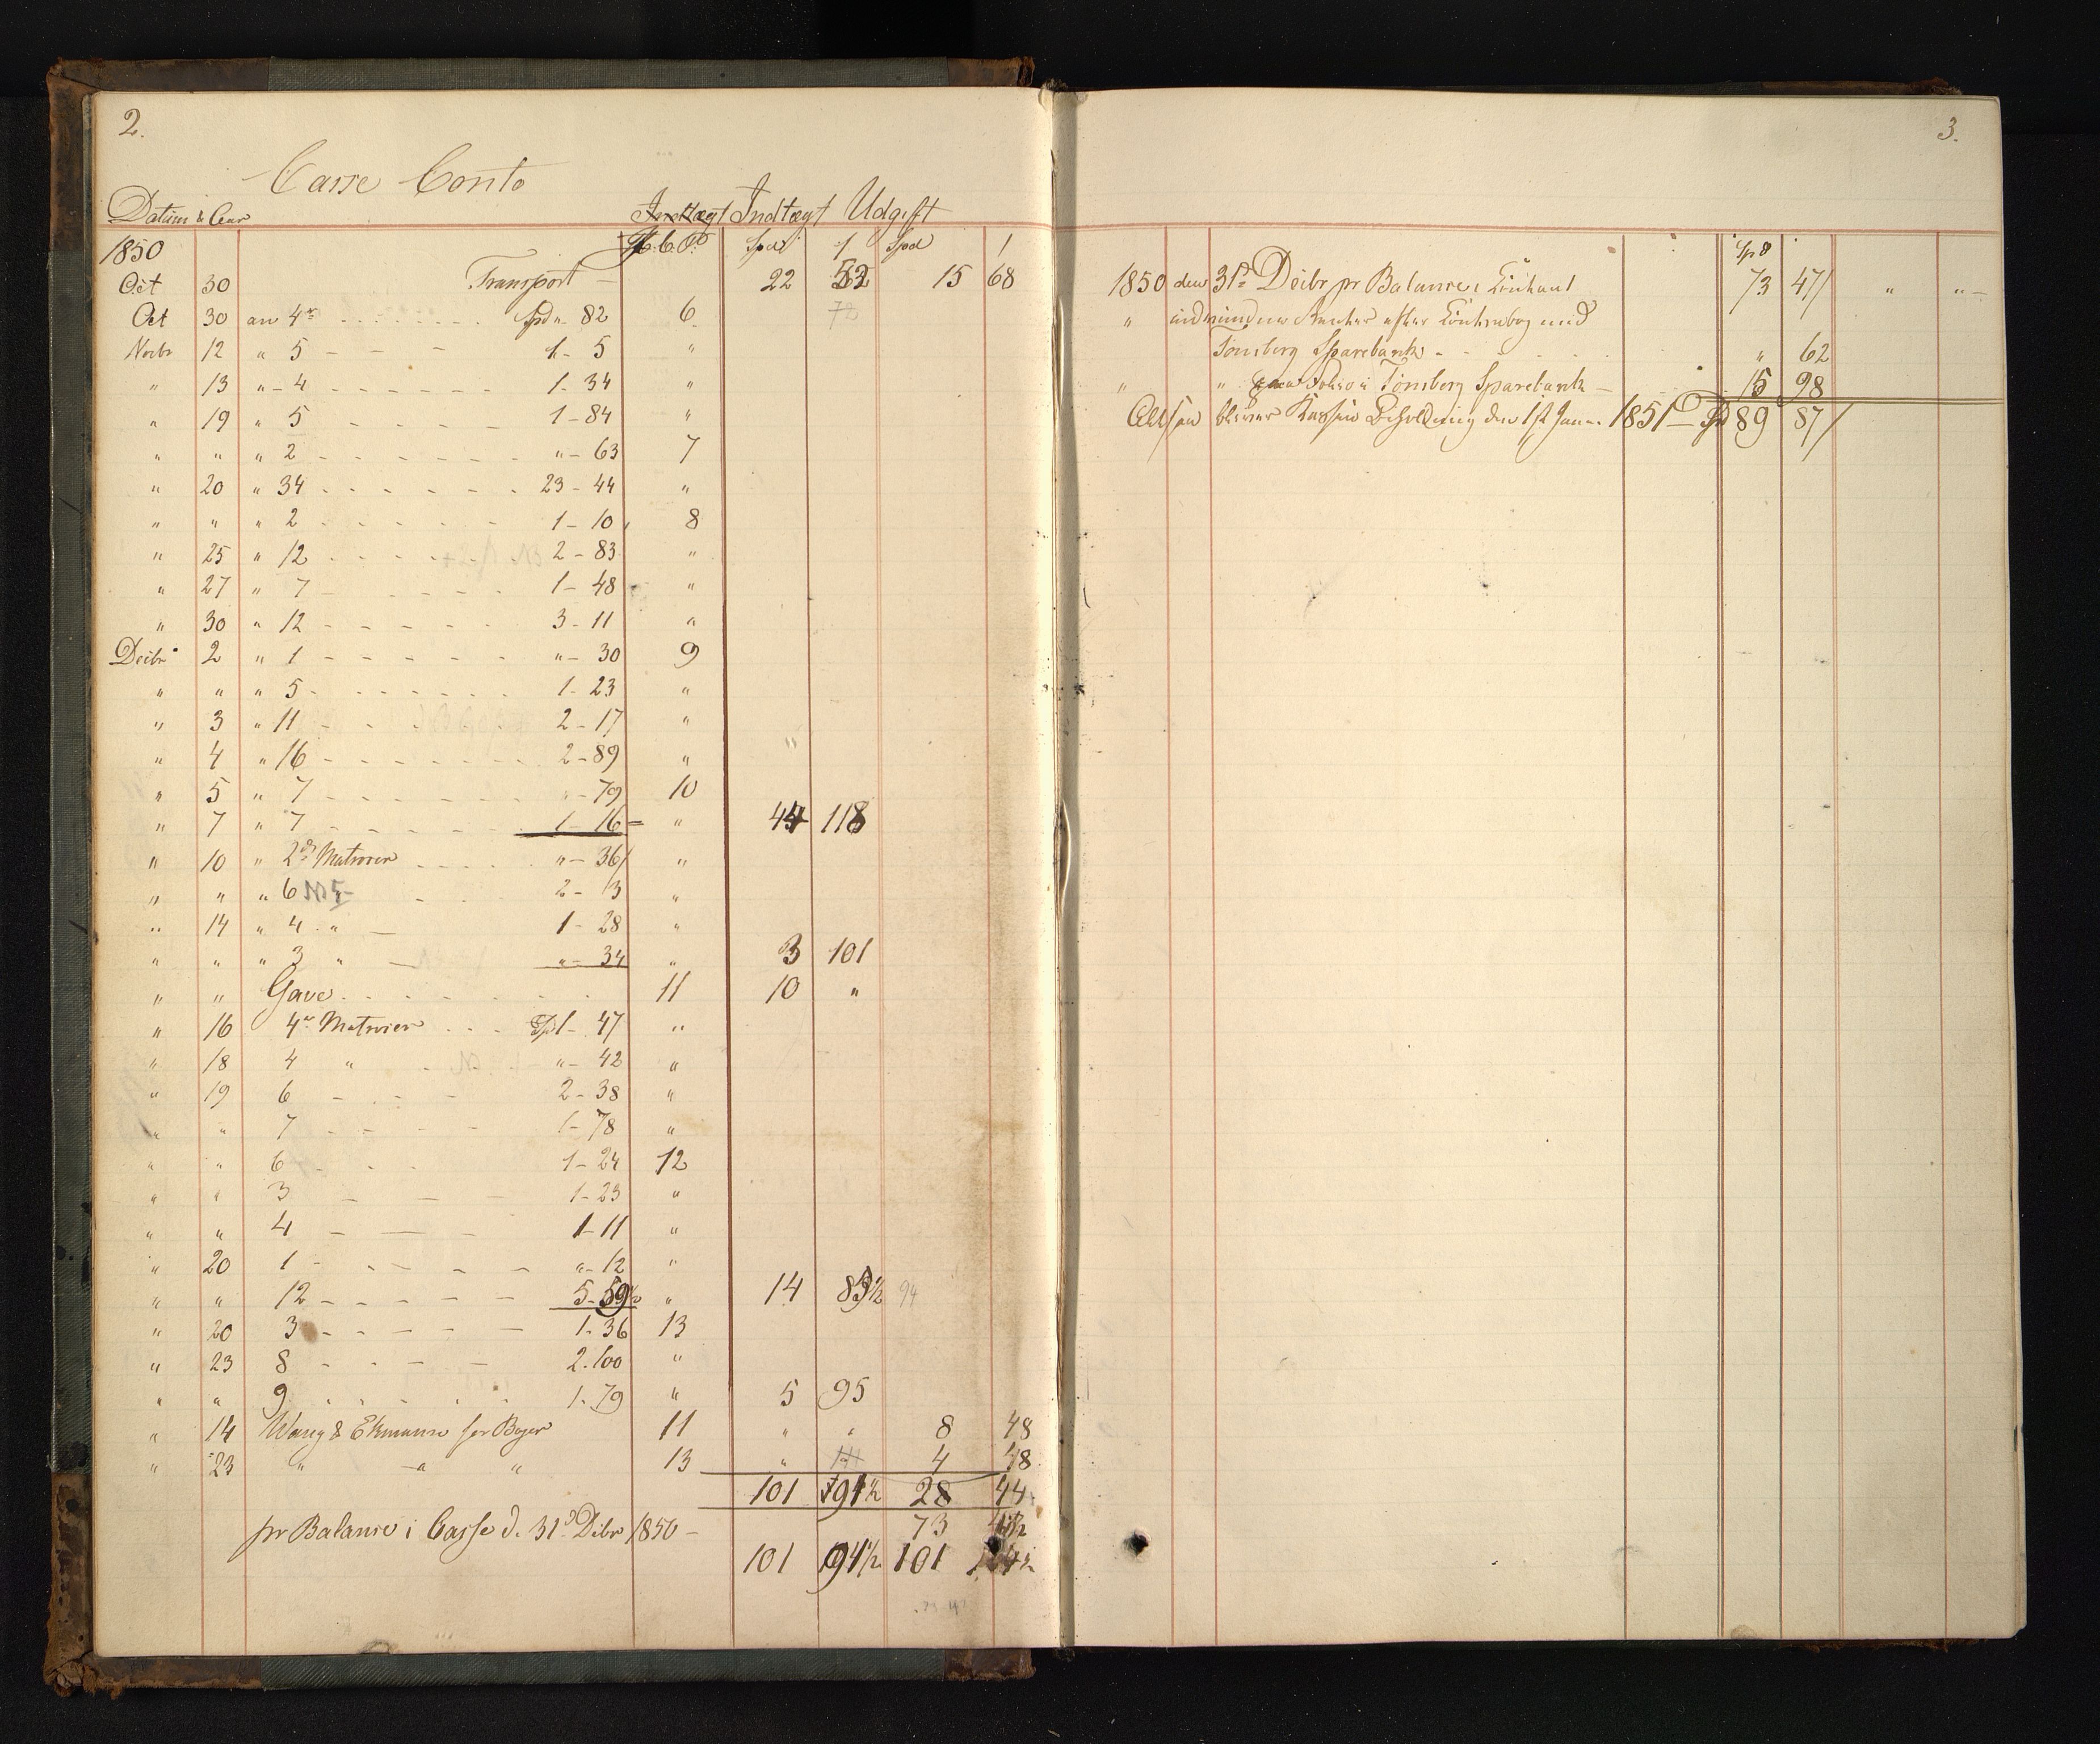 2.
Casse Conto
Datum & Aar Indtægt Indtægt Udgift
1850 Spd ſ Spd ſ
Oct 30 Transport — 22 52 15 68
Oct 30 an 4re . . . . Spd „ 82 6
Novbr 12 „ 5 — — — 1 - 5 „
„ 13 „ - 4 - - - - 1 - 34 „
„ 19 „ 5 - - - - 1 - 84 „
„ „ „ 2 - - - - „ - 63 7
„ 20 „ 34 - - - - 23 - 44 „
„ „ „ 2 - - - - 1 - 10 8
„ 25 „ 12 - - - - 2 - 83 „
„ 27 „ 7 - - - - 1 - 48 „
„ 30 „ 12 - - - - 3 - 11 „
Decbr 2 „ 1 - - - - „ - 30 9
„ „ „ 5 - - - - 1 - 23 „
„ 3 „ 11 - - - - 2 - 17 „
„ 4 „ 16 - - - - 2 - 89 „
„ 5 „ 7 - - - - „ - 79 10
„ 7 „ 7 - - - - 1 - 16 „ 44 118
„ 10 „ 2de Matroser . . . . „ - 36 „
„ „ „ 6 2 - 3 „
„ 14 „ 4 „ — 1 - 28 „
„ „ „ 3 „ — „ - 34 „ 3 101
„ „ Gave . . . . 11 10 „
„ 16 4re Matroser . . . Sp 1 - 47 „
„ 18 4 „ „ - 42 „
„ 19 6 - - - 2 - 38 „
„ „ 7 - - - 1 - 78 „
„ „ 6 - - - 1 - 24 12
„ „ 3 — — — 1 - 23 „
„ „ 4 — — — 1 - 11 „
„ 20 1 - - - „ - 12 „
„ „ 12 - - - 5 - 59½ „ 14 83½ 94
„ 20 3 - - - 1 - 36 13
„ 23 8 - - - 2 . 100 „
„ „ 9 . . . . 1 . 79 „ 5 95
„ 14 Wang & Ekmann for Bøger 11 „ „ 8 48
„ 23 „ „ „ 13 „ 4 48
101 91½ 28 44
pr Balance i Casse d. 31d Dcbr 1850 — 73 47½
101 91½ 101
3.
Sp ſ
1850 den 31d Decbr pr Balance 73 47 „ „
„
Tønsberg Sparebank - . . . „ 62
„ „ Tønsberg Sparebank — 15 98
Altsaa bliver Kassens Beholdning den 1st Jan. 1851 — Sp 89 87